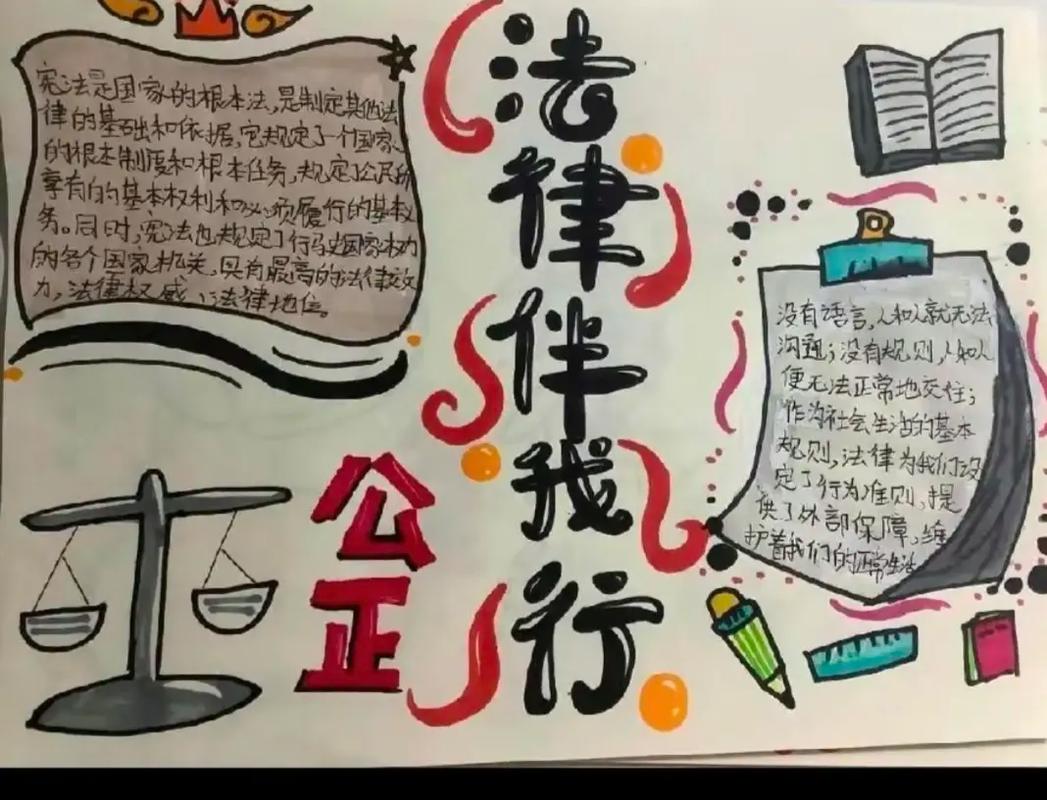 宪法是国家的根本法,是制定其他法
律的基础和依据,它规定了一个国家
的根本制度和根本任务,规定公民所
享有的基本权利和必须履行的基本义
务。同时,宪法也规定了行使国家权力
的各个国家机关。具有最高的法律效
力,法律权威、法律地位。
法律伴我行
公正
没有语言,人和人就无法
沟通;没有规则,人和人
便无法正常地交往;
作为社会生活的基本
规则,法律为我们设
定了行为准则,提
供了外部保障,维
护着我们的正常生活